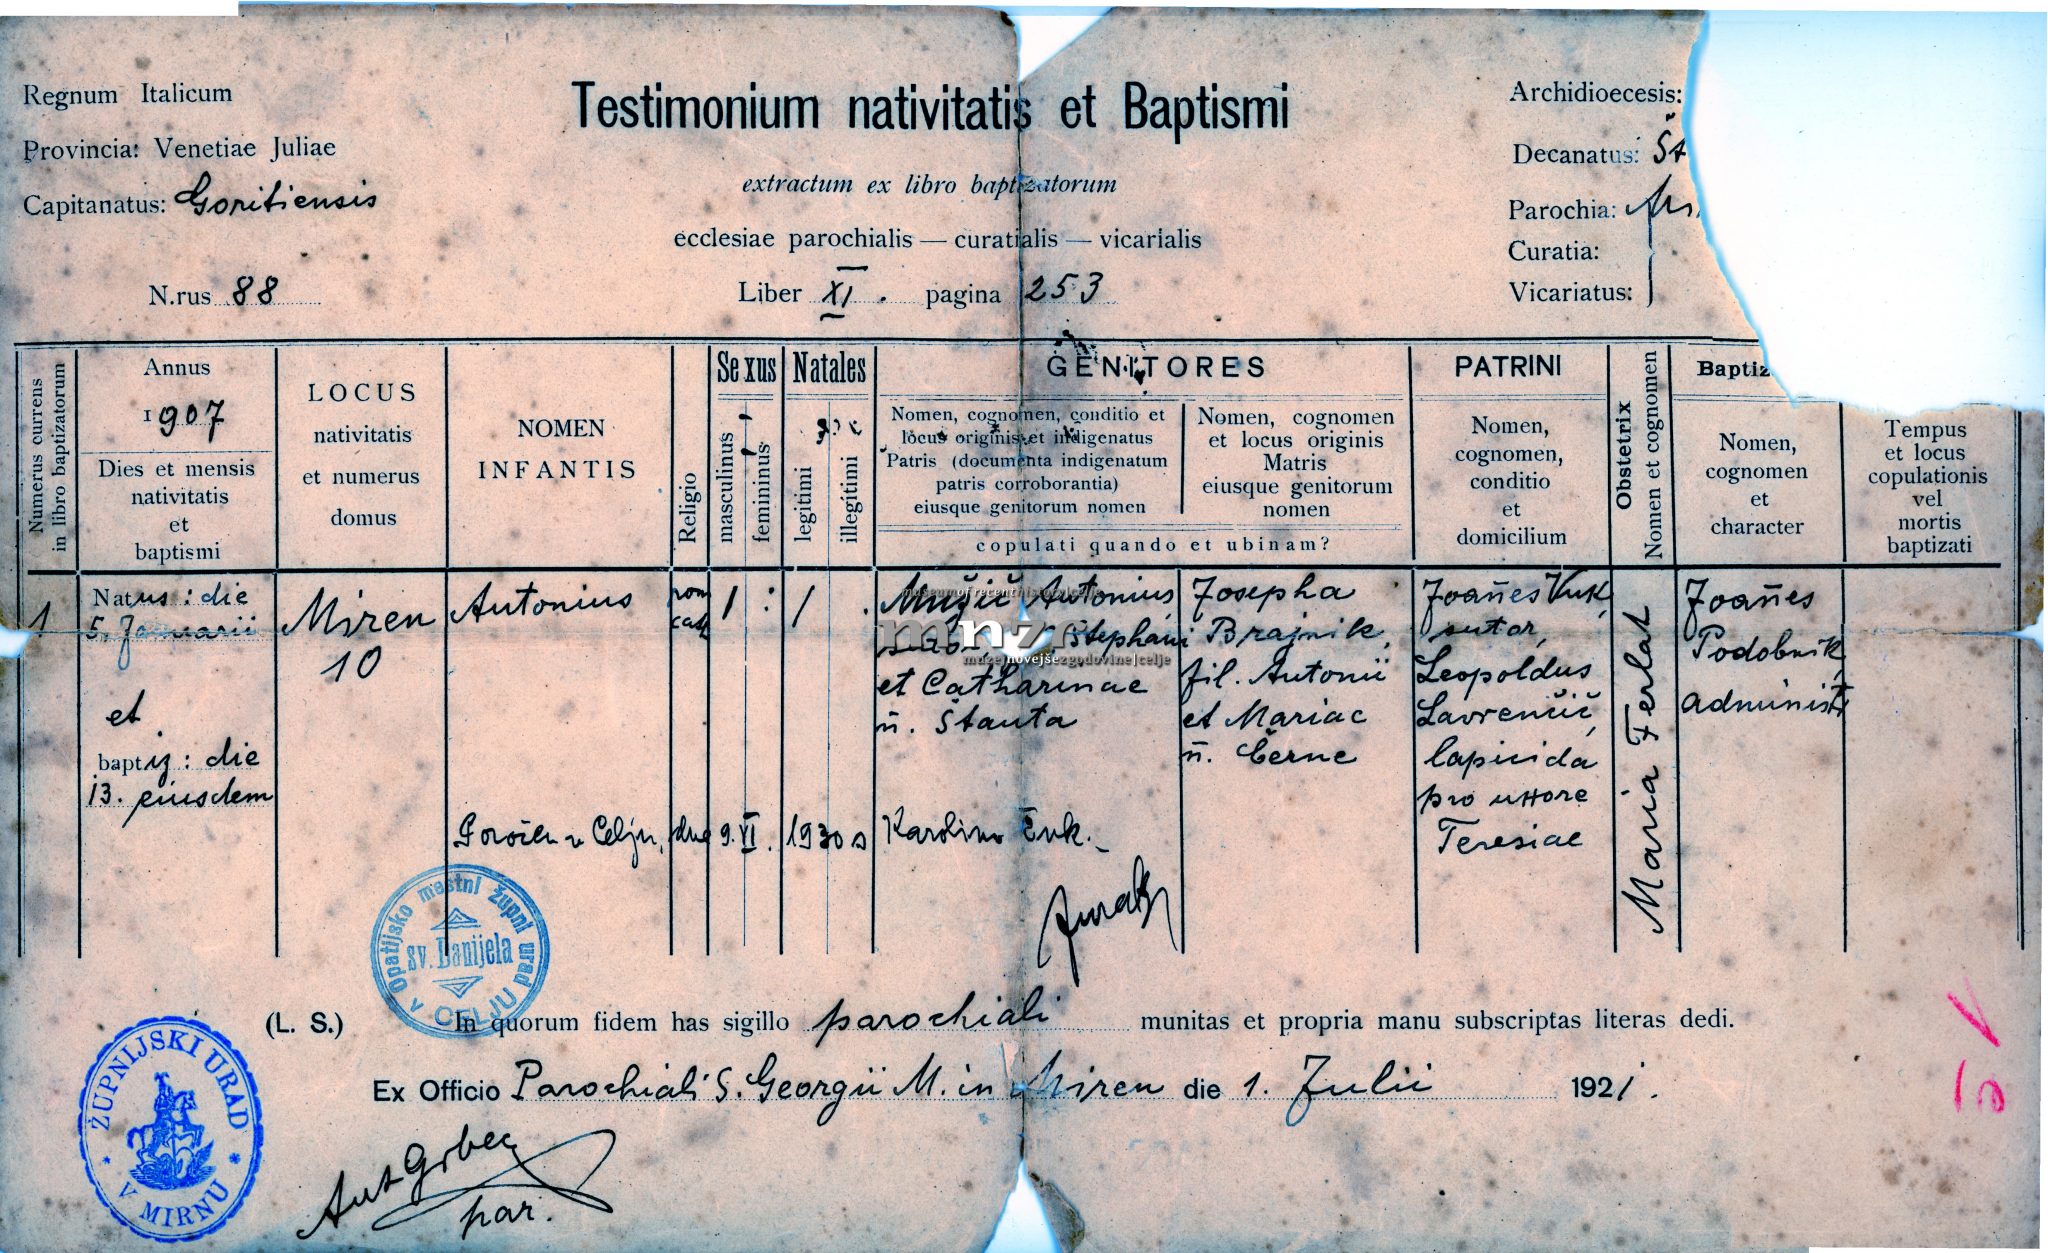 Regnum Italicum
Provincia: Venetiae Juliae
Capitanatus: Goritiensis
N.rus 88
Testimonium nativitatis et Baptismi
extractum ex libro baptizatorum
ecclesiae parochialis — curatialis — vicarialis
Liber XI. pagina 253
Archidioecesis:
Decanatus: Št
Parochia: Mi
Curatia:
Vicariatus:
Numerus currens
in libro baptizatorum
Annus
1907
Dies et mensis
nativitatis
et
baptismi
LOCUS
nativitatis
et numerus
domus
NOMEN
INFANTIS
Religio
Sexus
masculinus
femininus
Natales
legitimi
illegitimi
GENITORES
Nomen, cognomen, conditio et
locus originis et indigenatus
Patris (documenta indigenatum
patris corroborantia)
eiusque genitorum nomen
Nomen, cognomen
et locus originis
Matris
eiusque genitorum
nomen
copulati quando et ubinam?
PATRINI
Nomen,
cognomen,
conditio
et
domicilium
Obstetrix
Nomen et cognomen
Baptiz
Nomen,
cognomen
et
character
Tempus
et locus
copulationis
vel
mortis
baptizati
1
Natus: die
5. Januarii
et
baptiz: die
13. eiusdem
Miren
10
Antonius
rom
cath
1 : 1 .
Mužič Antonius
Stephani
et Catharinae
n̄. Štanta
Josepha
Brajnik,
fil. Antonii
et Mariae
n̄. Černe
Joan̄es Vuk,
sutor,
Leopoldus
Lavrenčič,
lapicida
pro uxore
Teresiae
Maria Ferlat
Joan̄es
Podobnik,
administ
Poročen v Celju, dne 9. VI. 1930 s Karolino
Opatijsko mestni župni urad
sv. Danijela
v CELJU
(L. S.) In quorum fidem has sigillo parochiali munitas et propria manu subscriptas literas dedi.
Ex Officio Parochiali S. Georgii M. in Miren die 1. Julii 1921.
ŽUPNIJSKI URAD
V MIRNU
Ant Grbec
par.
museumofrecenthistory|celje
mnzc
muzejnovejšezgodovine|celje